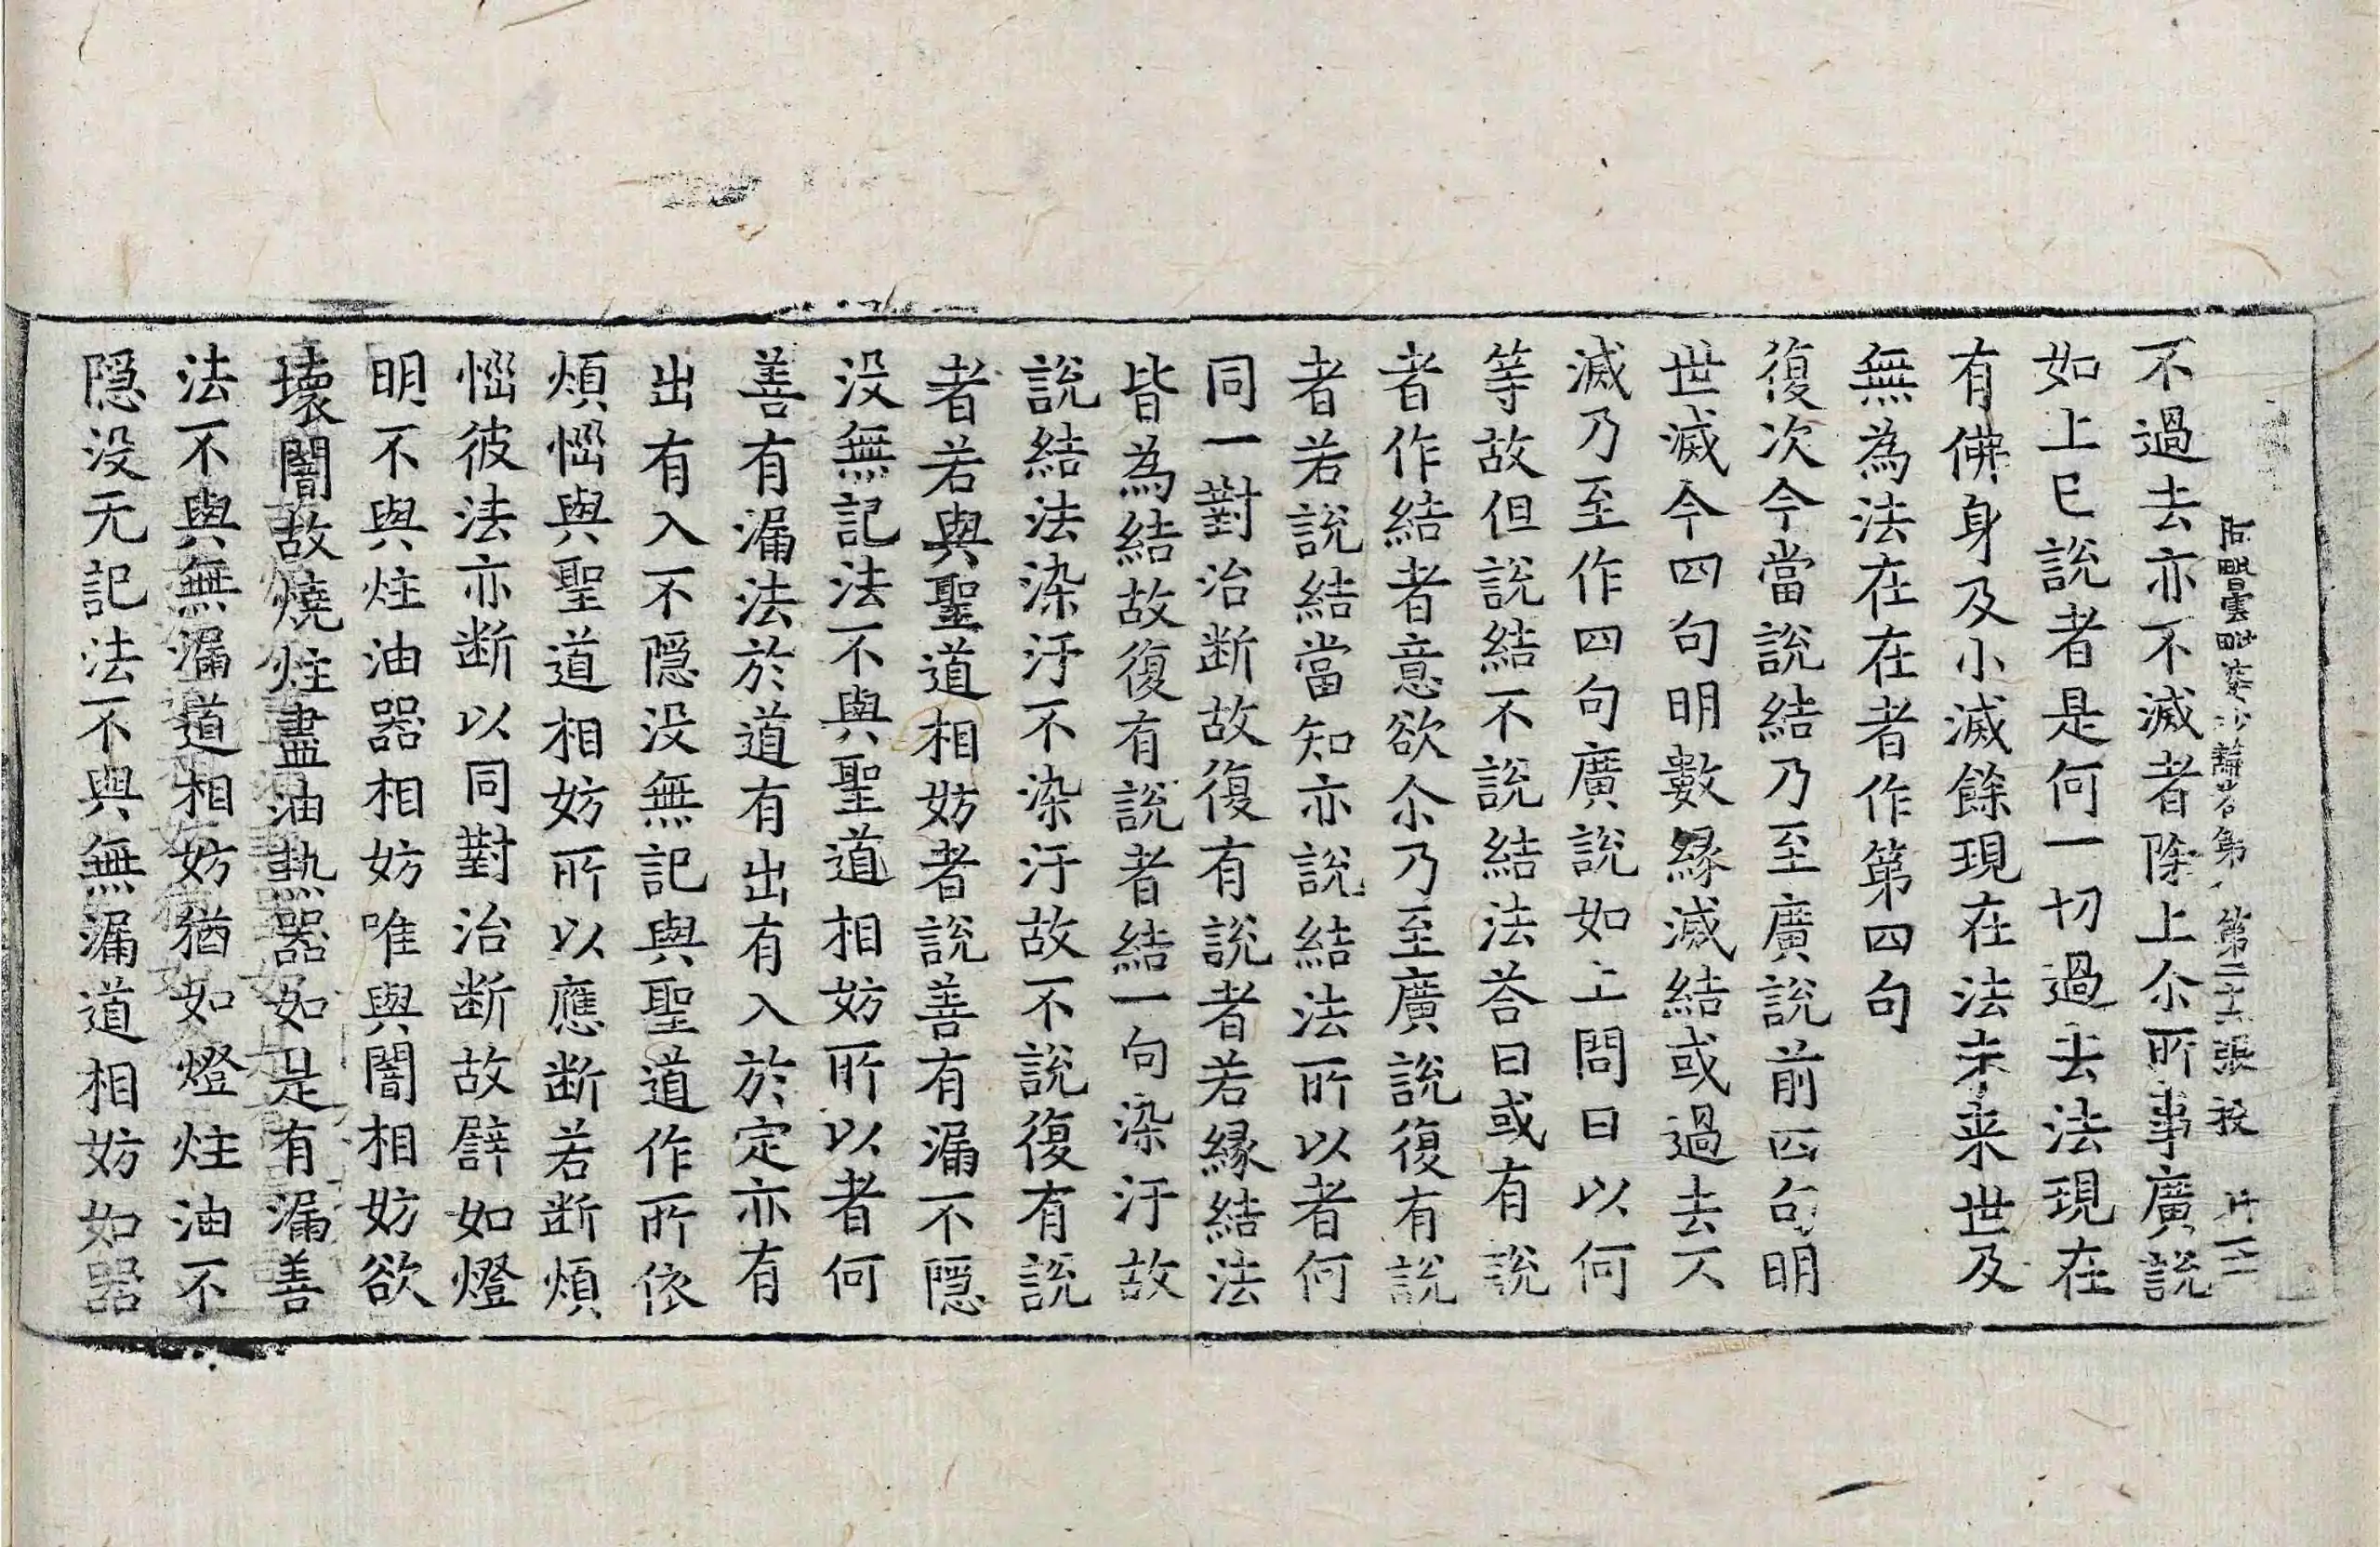 阿毗曇毗婆沙論卷第八 第二十六張 投
不過去亦不滅者除上尒所事廣説
如上已説者是何一切過去法現在
有佛身及小滅餘現在法未来世及
無為法在在者作第四句
復次今當説結乃至廣説前四句明
世滅今四句明數縁滅結或過去不
滅乃至作四句廣説如上問曰以何
等故但説結不説結法荅曰或有説
者作結者意欲尒乃至廣説復有説
者若説結當知亦説結法所以者何
同一對治断故復有説者若縁結法
皆為結故復有説者結一句染汙故
説結法染汙不染汙故不説復有説
者若與聖道相妨者説善有漏不隠
没無記法不與聖道相妨所以者何
善有漏法於道有出有入於定亦有
出有入不隠没無記與聖道作所依
煩惱與聖道相妨所以應断若断煩
惱彼法亦断以同對治断故譬如燈
明不與炷油器相妨唯與闇相妨欲
壊闇故燒炷盡油熱器如是有漏善
法不與無漏道相妨猶如燈炷油不
隠没无記法不與無漏道相妨如器